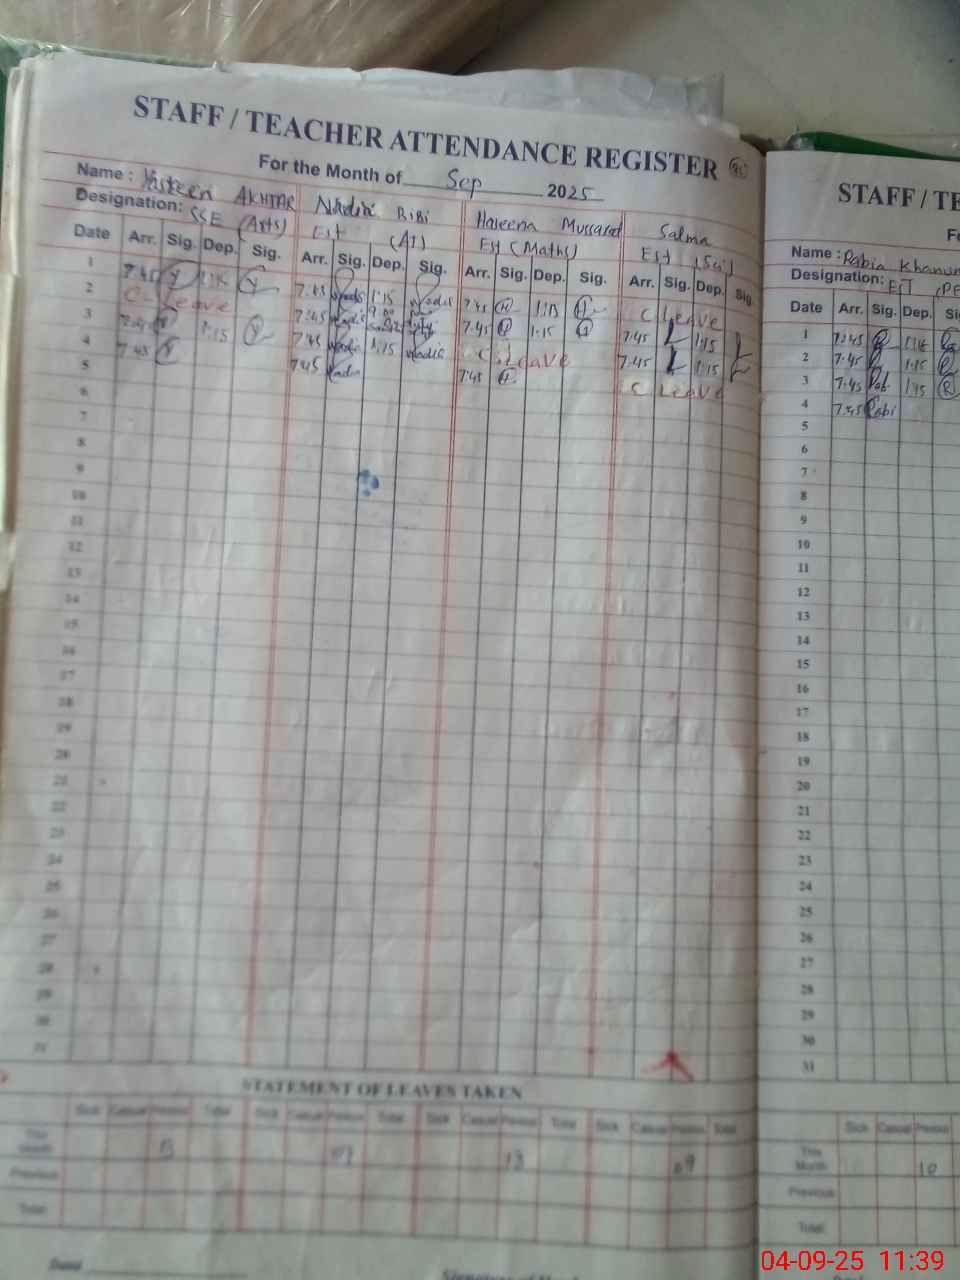 STAFF / TEACHER ATTENDANCE REGISTER
For the Month of Sep 2025
Name : Yasteen AKHTAR Nadia BiBi Haleema Mussarat Salma
Designation: SSE (Arts) Est (AT) Est (Maths) Est (Sci)
Date Arr. Sig. Dep. Sig. Arr. Sig. Dep. Sig. Arr. Sig. Dep. Sig. Arr. Sig. Dep. Sig.
1 7.45 1:15 7.45 1:15 7.45 1:15 C Leave
2 C- Leave 7.45 7.45 1.15 7.45 1:15
3 7.45 1:15 7.45 1:15 C Leave 7.45 1:15
4 7.45 7.45 7.45 C Leave
5
6
7
8
9
10
11
12
13
14
15
16
17
18
19
20
21
22
23
24
25
26
27
28
29
30
31
STATEMENT OF LEAVES TAKEN
Sick Casual Total Sick Casual Total Sick Casual Total Sick Casual Total
This Month 13 09
Previous
Total
STAFF / TE
Name : Rabia Khanum
Designation: EST (PE
Date Arr. Sig. Dep. Si
1 7:45 1:15
2 7.45 1.15
3 7.45 Rab 1:15
4 7.45 Rabi
5
6
7
8
9
10
11
12
13
14
15
16
17
18
19
20
21
22
23
24
25
26
27
28
29
30
31
Sick Casual
This Month 10
Previous
Total
04-09-25 11:39